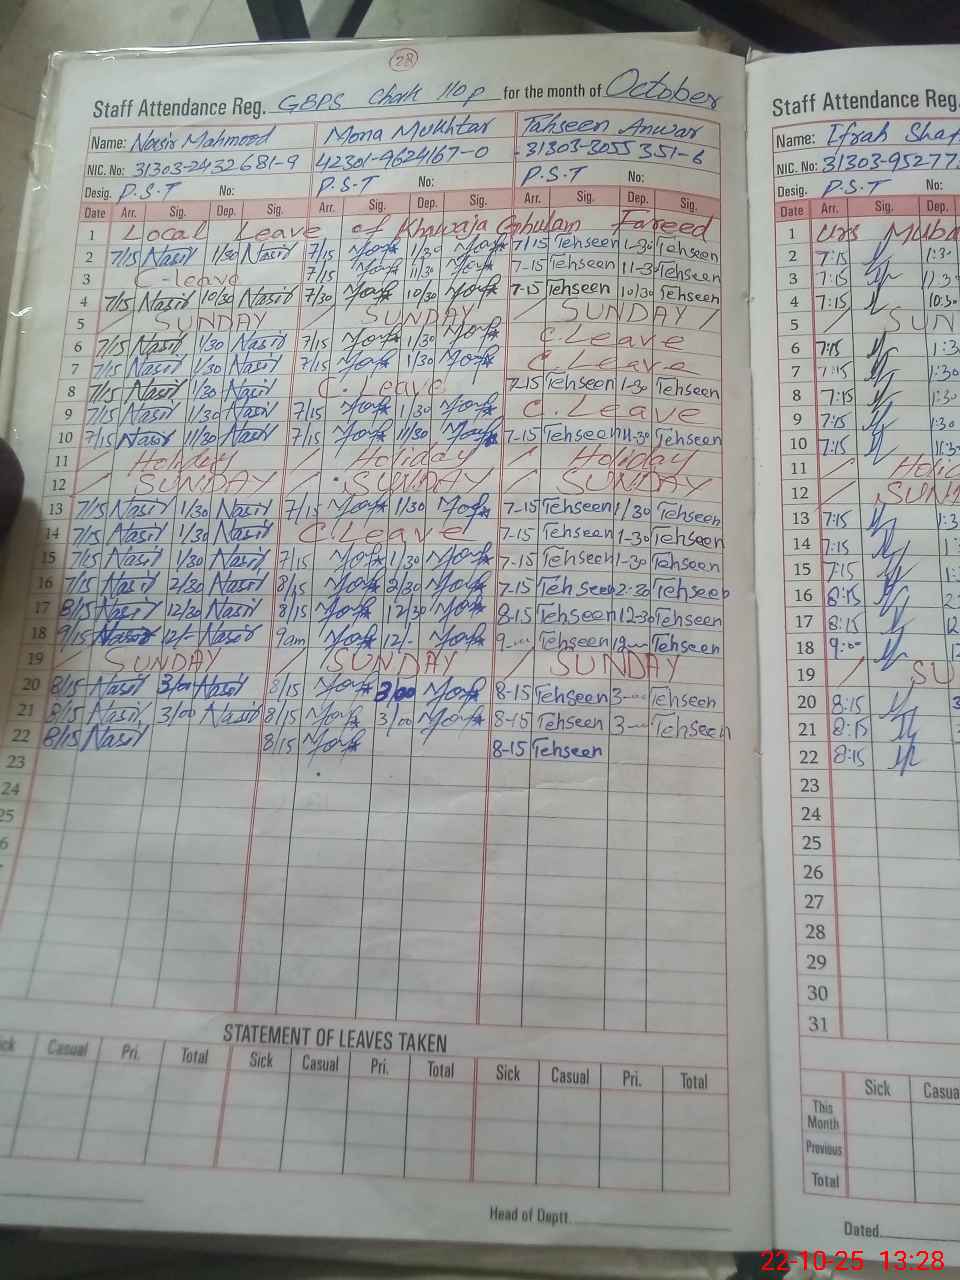 28
Staff Attendance Reg. GBPS Chak 110p for the month of October
Name: Nasir Mahmood Mona Mukhtar Tahseen Anwar
NIC. No: 31303-2432681-9 42301-9624167-0 31303-3055351-6
Desig. P.S.T No: P.S.T No: P.S.T No:
Date Arr. Sig. Dep. Sig. Arr. Sig. Dep. Sig. Arr. Sig. Dep. Sig.
1 Local Leave of Khawaja Ghulam Fareed
2 7/15 Nasir 1/30 Nasir 7/15 1/30 7/15 Tehseen 1-30 Tehseen
3 C-leave 7/15 11/30 7-15 Tehseen 11-3 Tehseen
4 7/15 Nasir 10/30 Nasir 7/30 10/30 7-15 Tehseen 10/30 Tehseen
5 SUNDAY SUNDAY SUNDAY
6 7/15 Nasir 1/30 Nasir 7/15 1/30 C.Leave
7 7/15 Nasir 1/30 Nasir 7/15 1/30 C.Leave
8 7/15 Nasir 1/30 Nasir C.Leave 7-15 Tehseen 1-30 Tehseen
9 7/15 Nasir 1/30 Nasir 7/15 1/30 C.Leave
10 7/15 Nasir 11/30 Nasir 7/15 11/30 7-15 Tehseen 11-30 Tehseen
11 Holiday Holiday Holiday
12 SUNDAY SUNDAY SUNDAY
13 7/15 Nasir 1/30 Nasir 7/15 1/30 7-15 Tehseen 1/30 Tehseen
14 7/15 Nasir 1/30 Nasir C.Leave 7-15 Tehseen 1-30 Tehseen
15 7/15 Nasir 1/30 Nasir 7/15 1/30 7-15 Tehseen 1-30 Tehseen
16 7/15 Nasir 2/30 Nasir 8/15 2/30 7-15 Tehseen 2-30 Tehseen
17 8/15 Nasir 12/30 Nasir 8/15 12/30 8-15 Tehseen 12-30 Tehseen
18 9/15 Nasir 12/- Nasir 9am 12/- 9 Tehseen 12 Tehseen
19 SUNDAY SUNDAY SUNDAY
20 8/15 Nasir 3/00 Nasir 8/15 3/00 8-15 Tehseen 3 Tehseen
21 8/15 Nasir 3/00 Nasir 8/15 3/00 8-15 Tehseen 3 Tehseen
22 8/15 Nasir 8/15 8-15 Tehseen
23
24
25
6
STATEMENT OF LEAVES TAKEN
ick Casual Pri. Total Sick Casual Pri. Total Sick Casual Pri. Total
Head of Deptt.
Staff Attendance Reg.
Name: Ifrah Shaf
NIC. No: 31303-95277
Desig. P.S.T No:
Date Arr. Sig. Dep.
1 Urs Muba
2 7:15 1:3
3 7:15 11:30
4 7:15 10:30
5 SUN
6 7:15 1:3
7 7:15 1:30
8 7:15 1:30
9 7:15 1:30
10 7:15 11:3
11 Holi
12 SUN
13 7:15 1:3
14 7:15 1:
15 7:15 1:
16 8:15 2
17 8:15 12
18 9:00 12
19 SU
20 8:15 3
21 8:15
22 8:15
23
24
25
26
27
28
29
30
31
Sick Casua
This Month
Previous
Total
Dated
22-10-25 13:28